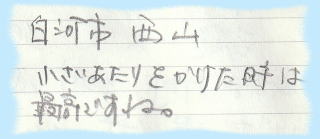 白河市 西山
小さいあたりをかけた時は
最高ですね。